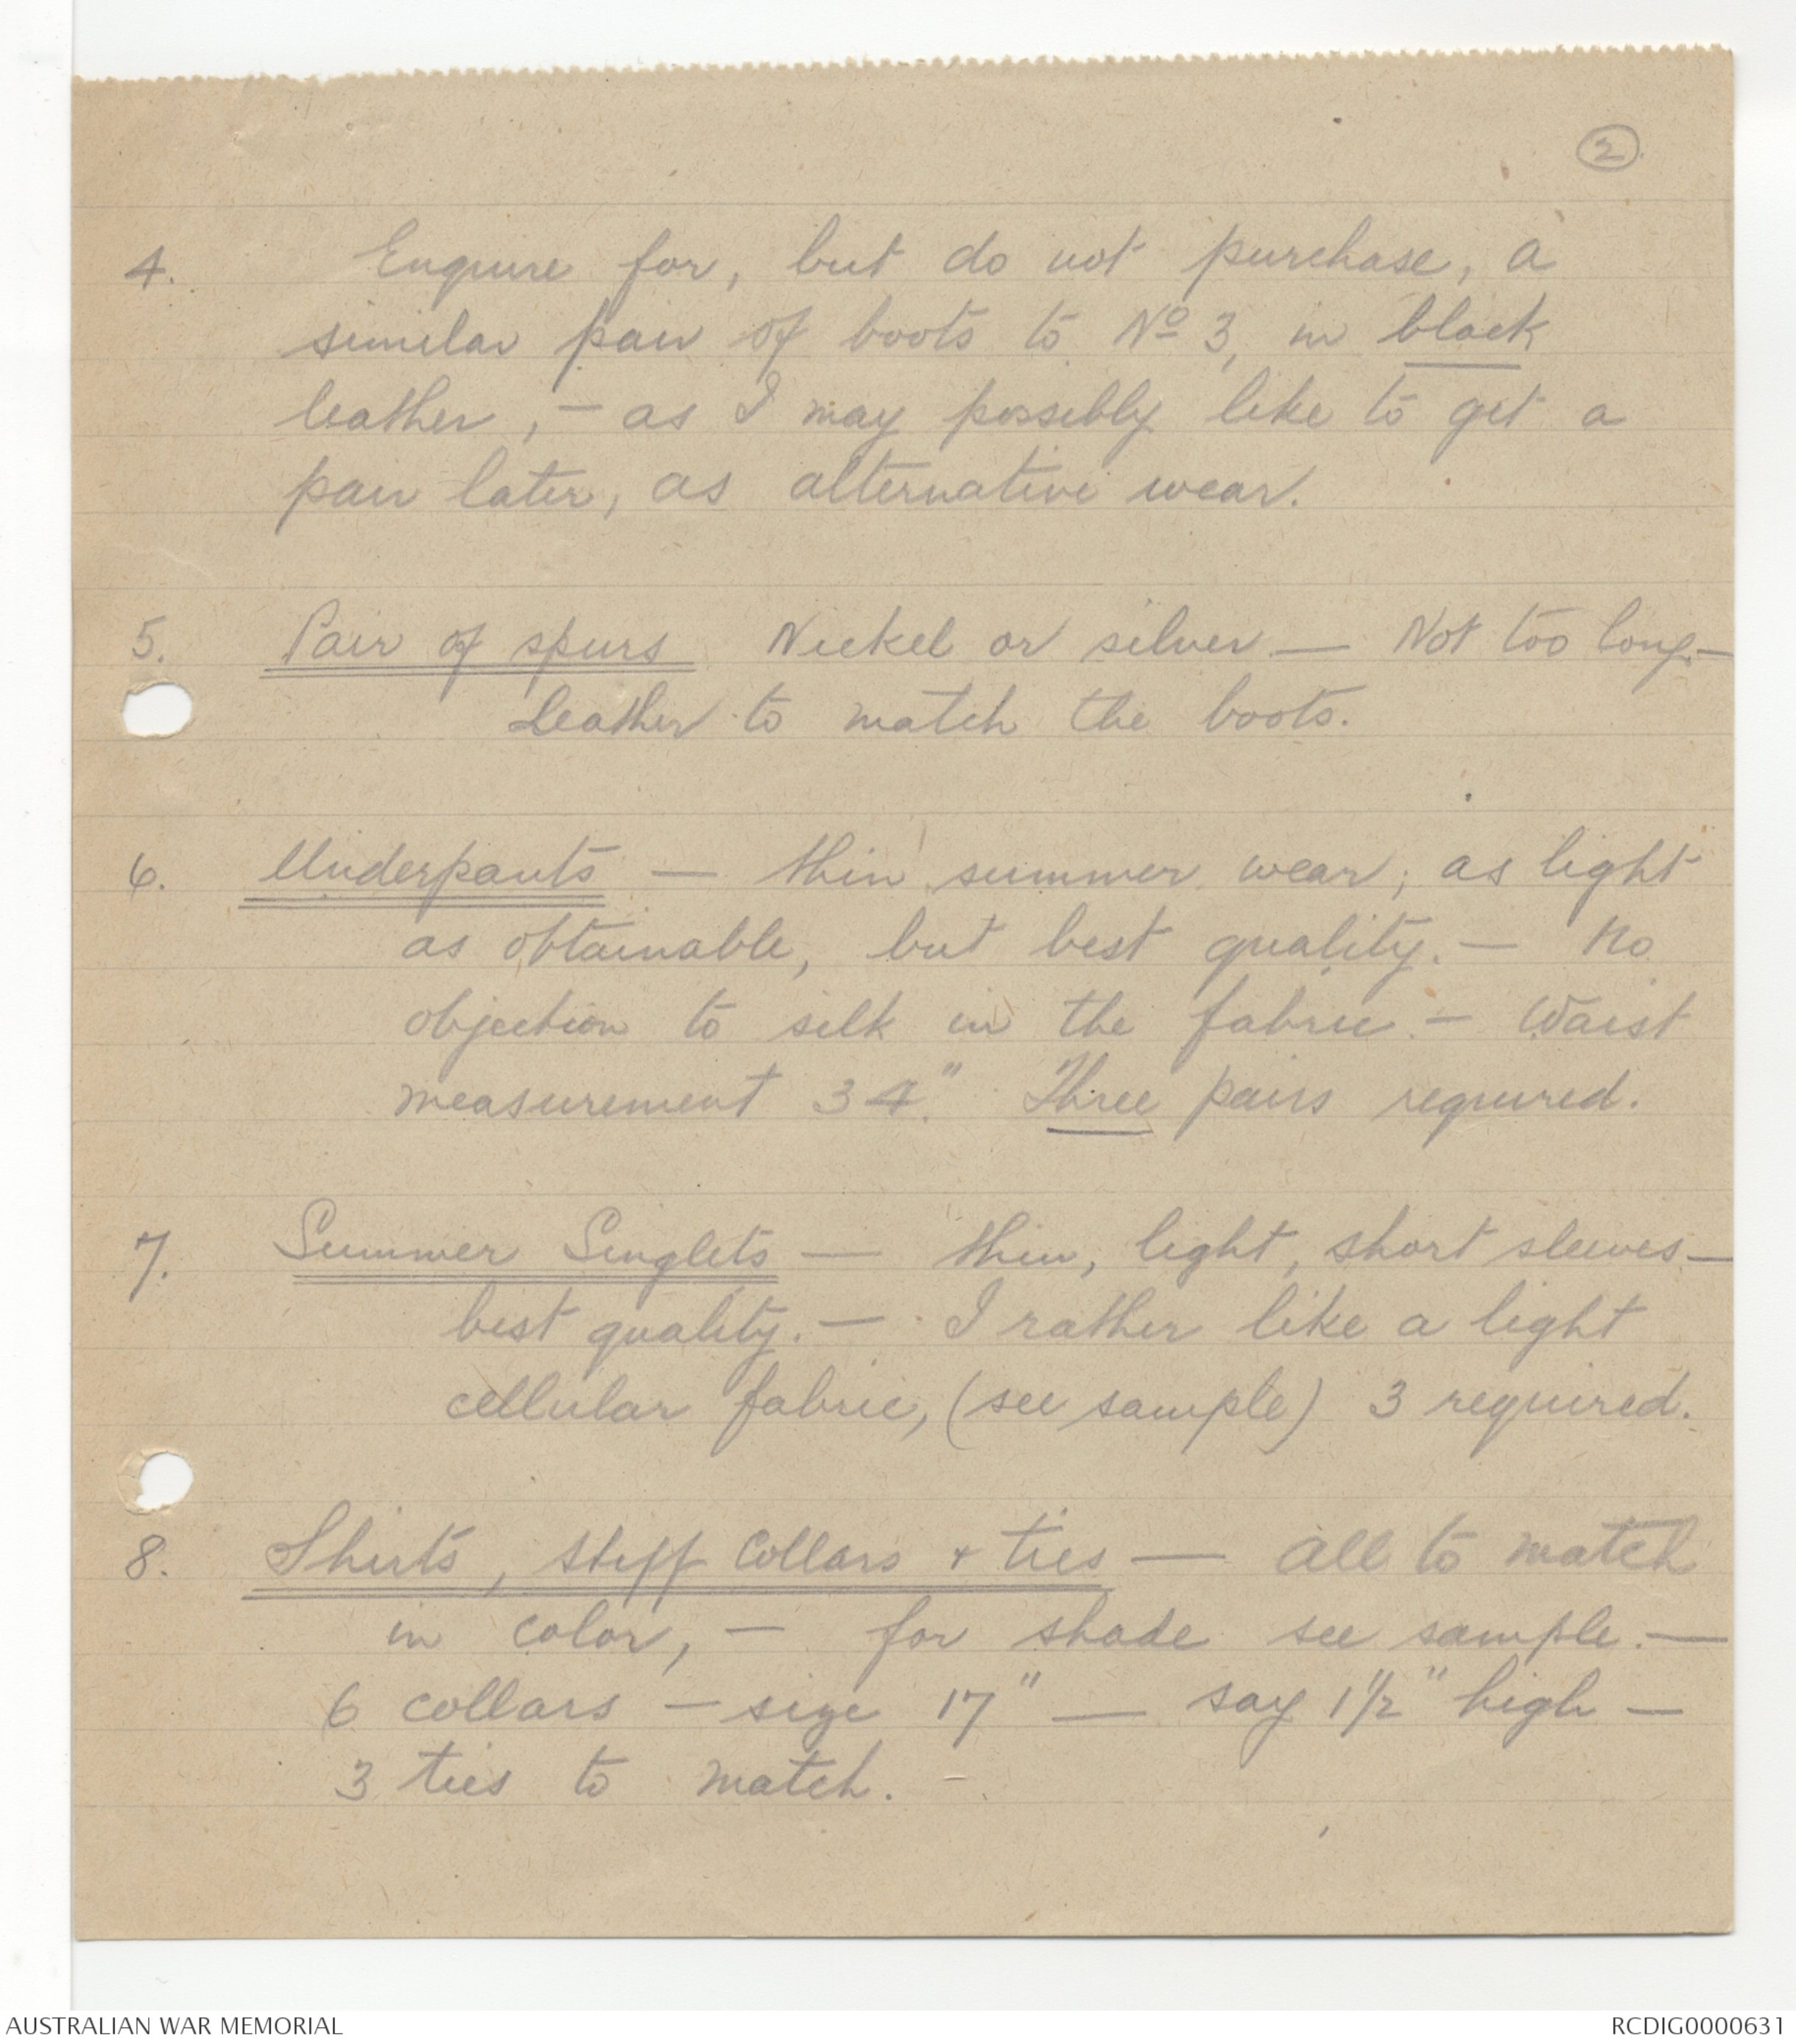 2.
4. Enquire for, but do not purchase, a
similar pair of boots to No 3, in black
leather, - as I may possibly like to get a
pair later, as alternative wear.
5. Pair of spurs Nickel or silver — Not too long. —
Leather to match the boots.
6. Underpants — thin summer wear, as light
as obtainable, but best quality. — No
objection to silk in the fabric. — Waist
measurement 34". Three pairs required.
7. Summer Singlets — thin, light, short sleeves —
best quality. — I rather like a light
cellular fabric, (see sample) 3 required.
8. Shirts, stiff collars + ties — all to match
in color, — for shade see sample. —
6 collars — size 17" — say 1 1/2" high —
3 ties to match. -
AUSTRALIAN WAR MEMORIAL
RCDIG0000631